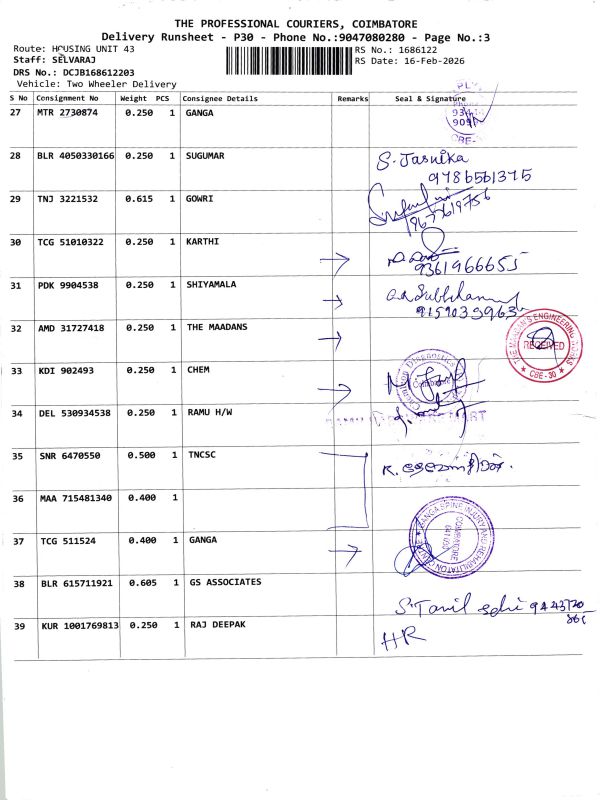 THE PROFESSIONAL COURIERS, COIMBATORE
Delivery Runsheet - P30 - Phone No.:9047080280 - Page No.:3
Route: HOUSING UNIT 43
RS No.: 1686122
Staff: SELVARAJ
RS Date: 16-Feb-2026
DRS No.: DCJB168612203
Vehicle: Two Wheeler Delivery
S No Consignment No Weight PCS Consignee Details Remarks Seal & Signature
27 MTR 2730874 0.250 1 GANGA
28 BLR 4050330166 0.250 1 SUGUMAR S. Jasnika
9786561375
29 TNJ 3221532 0.615 1 GOWRI
30 TCG 51010322 0.250 1 KARTHI
9361966655
31 PDK 9904538 0.250 1 SHIYAMALA
32 AMD 31727418 0.250 1 THE MAADANS RECEIVED
CBE-30
33 KDI 902493 0.250 1 CHEM
Coimbatore
34 DEL 530934538 0.250 1 RAMU H/W
MART
35 SNR 6470550 0.500 1 TNCSC
36 MAA 715481340 0.400 1
37 TCG 511524 0.400 1 GANGA GANGA SPINE INJURY AND REHABILITATION CENTRE
COIMBATORE
38 BLR 615711921 0.605 1 GS ASSOCIATES
S. Tamil selvi
39 KUR 1001769813 0.250 1 RAJ DEEPAK HR